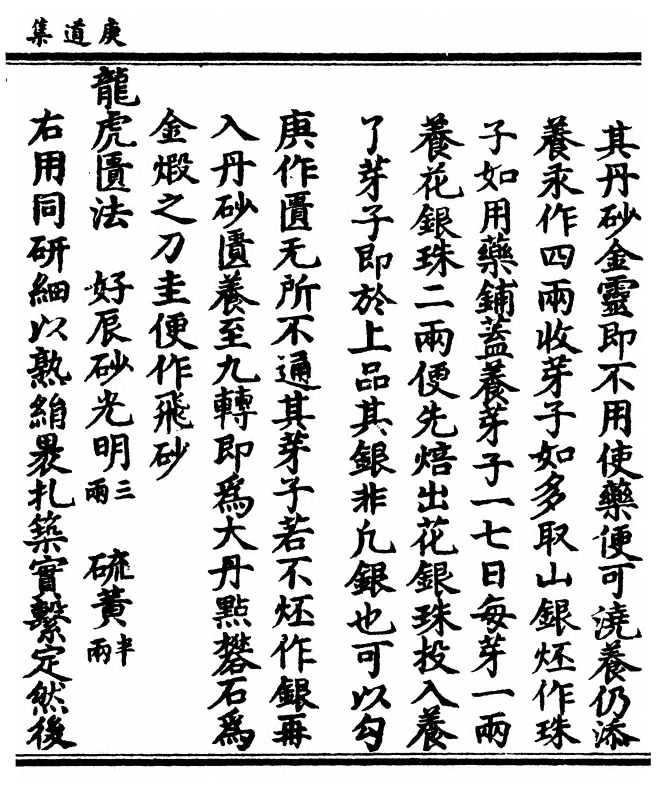 庚道集
其丹砂金靈即不用使藥便可澆養仍添
養汞作四兩收芽子如多取山銀煃作珠
子如用藥鋪蓋養芽子一七日每芽一兩
養花銀珠二兩便先焙出花銀珠投入養
了芽子即於上品其銀非凡銀也可以勾
庚作匱无所不通其芽子若不煃作銀再
入丹砂匱養至九轉即爲大丹點礬石爲
金煅之刀圭便作飛砂
龍虎匱法 好辰砂光明三兩 硫黄半兩
右用同研細以熟絹褁扎築實繫定然後